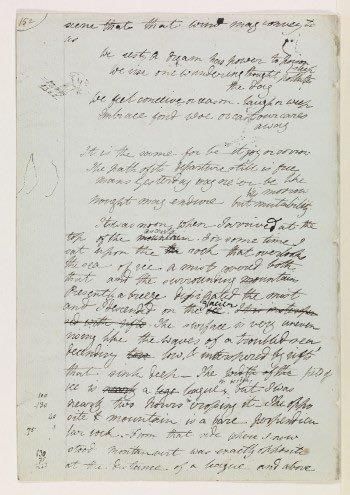 162
scene that that wind may convey to
us
We rest; a dream has power to poison
sleep
we rise one wandering thought pollutes
the day
We feel conceive or reason laugh or weep
Embrace fond woe or cast our cares
away
It is the same for be it joy or sorrow
The path of its departure still is free
Mans yesterday may ne'er be like
his morrow
Nought may endure but mutability
It was noon when I arrived at the
ascent
top of the mountain For some time I
sat upon the rock that overlooks
the sea of ice a mist covered both
that and the surrounding mountains
Presently a breeze dissipated the mist
glacier
and I descended on the ice It is intersper
sed with rifts The surface is very uneven
rising like the waves of a troubled sea
decending low, & interspersed by rifts
that sink deep – The width of the field of
in width
ice is nearly a league, but I was
nearly two hours crossing it. The oppo
site mountain is a bare perpendicu
lar rock. From that side where I now
stood montanvert was exactly opposite
at the distance of a league and above
100
130
75
130